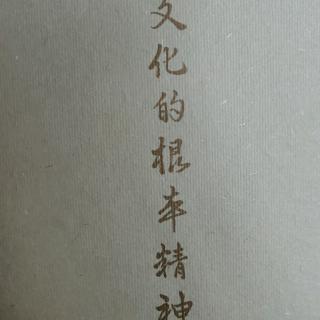 文化的根本精神